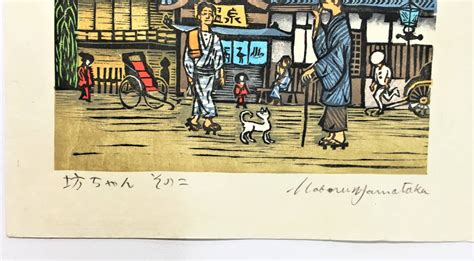 温泉
坊ちゃん その二
Noboru Yamataka